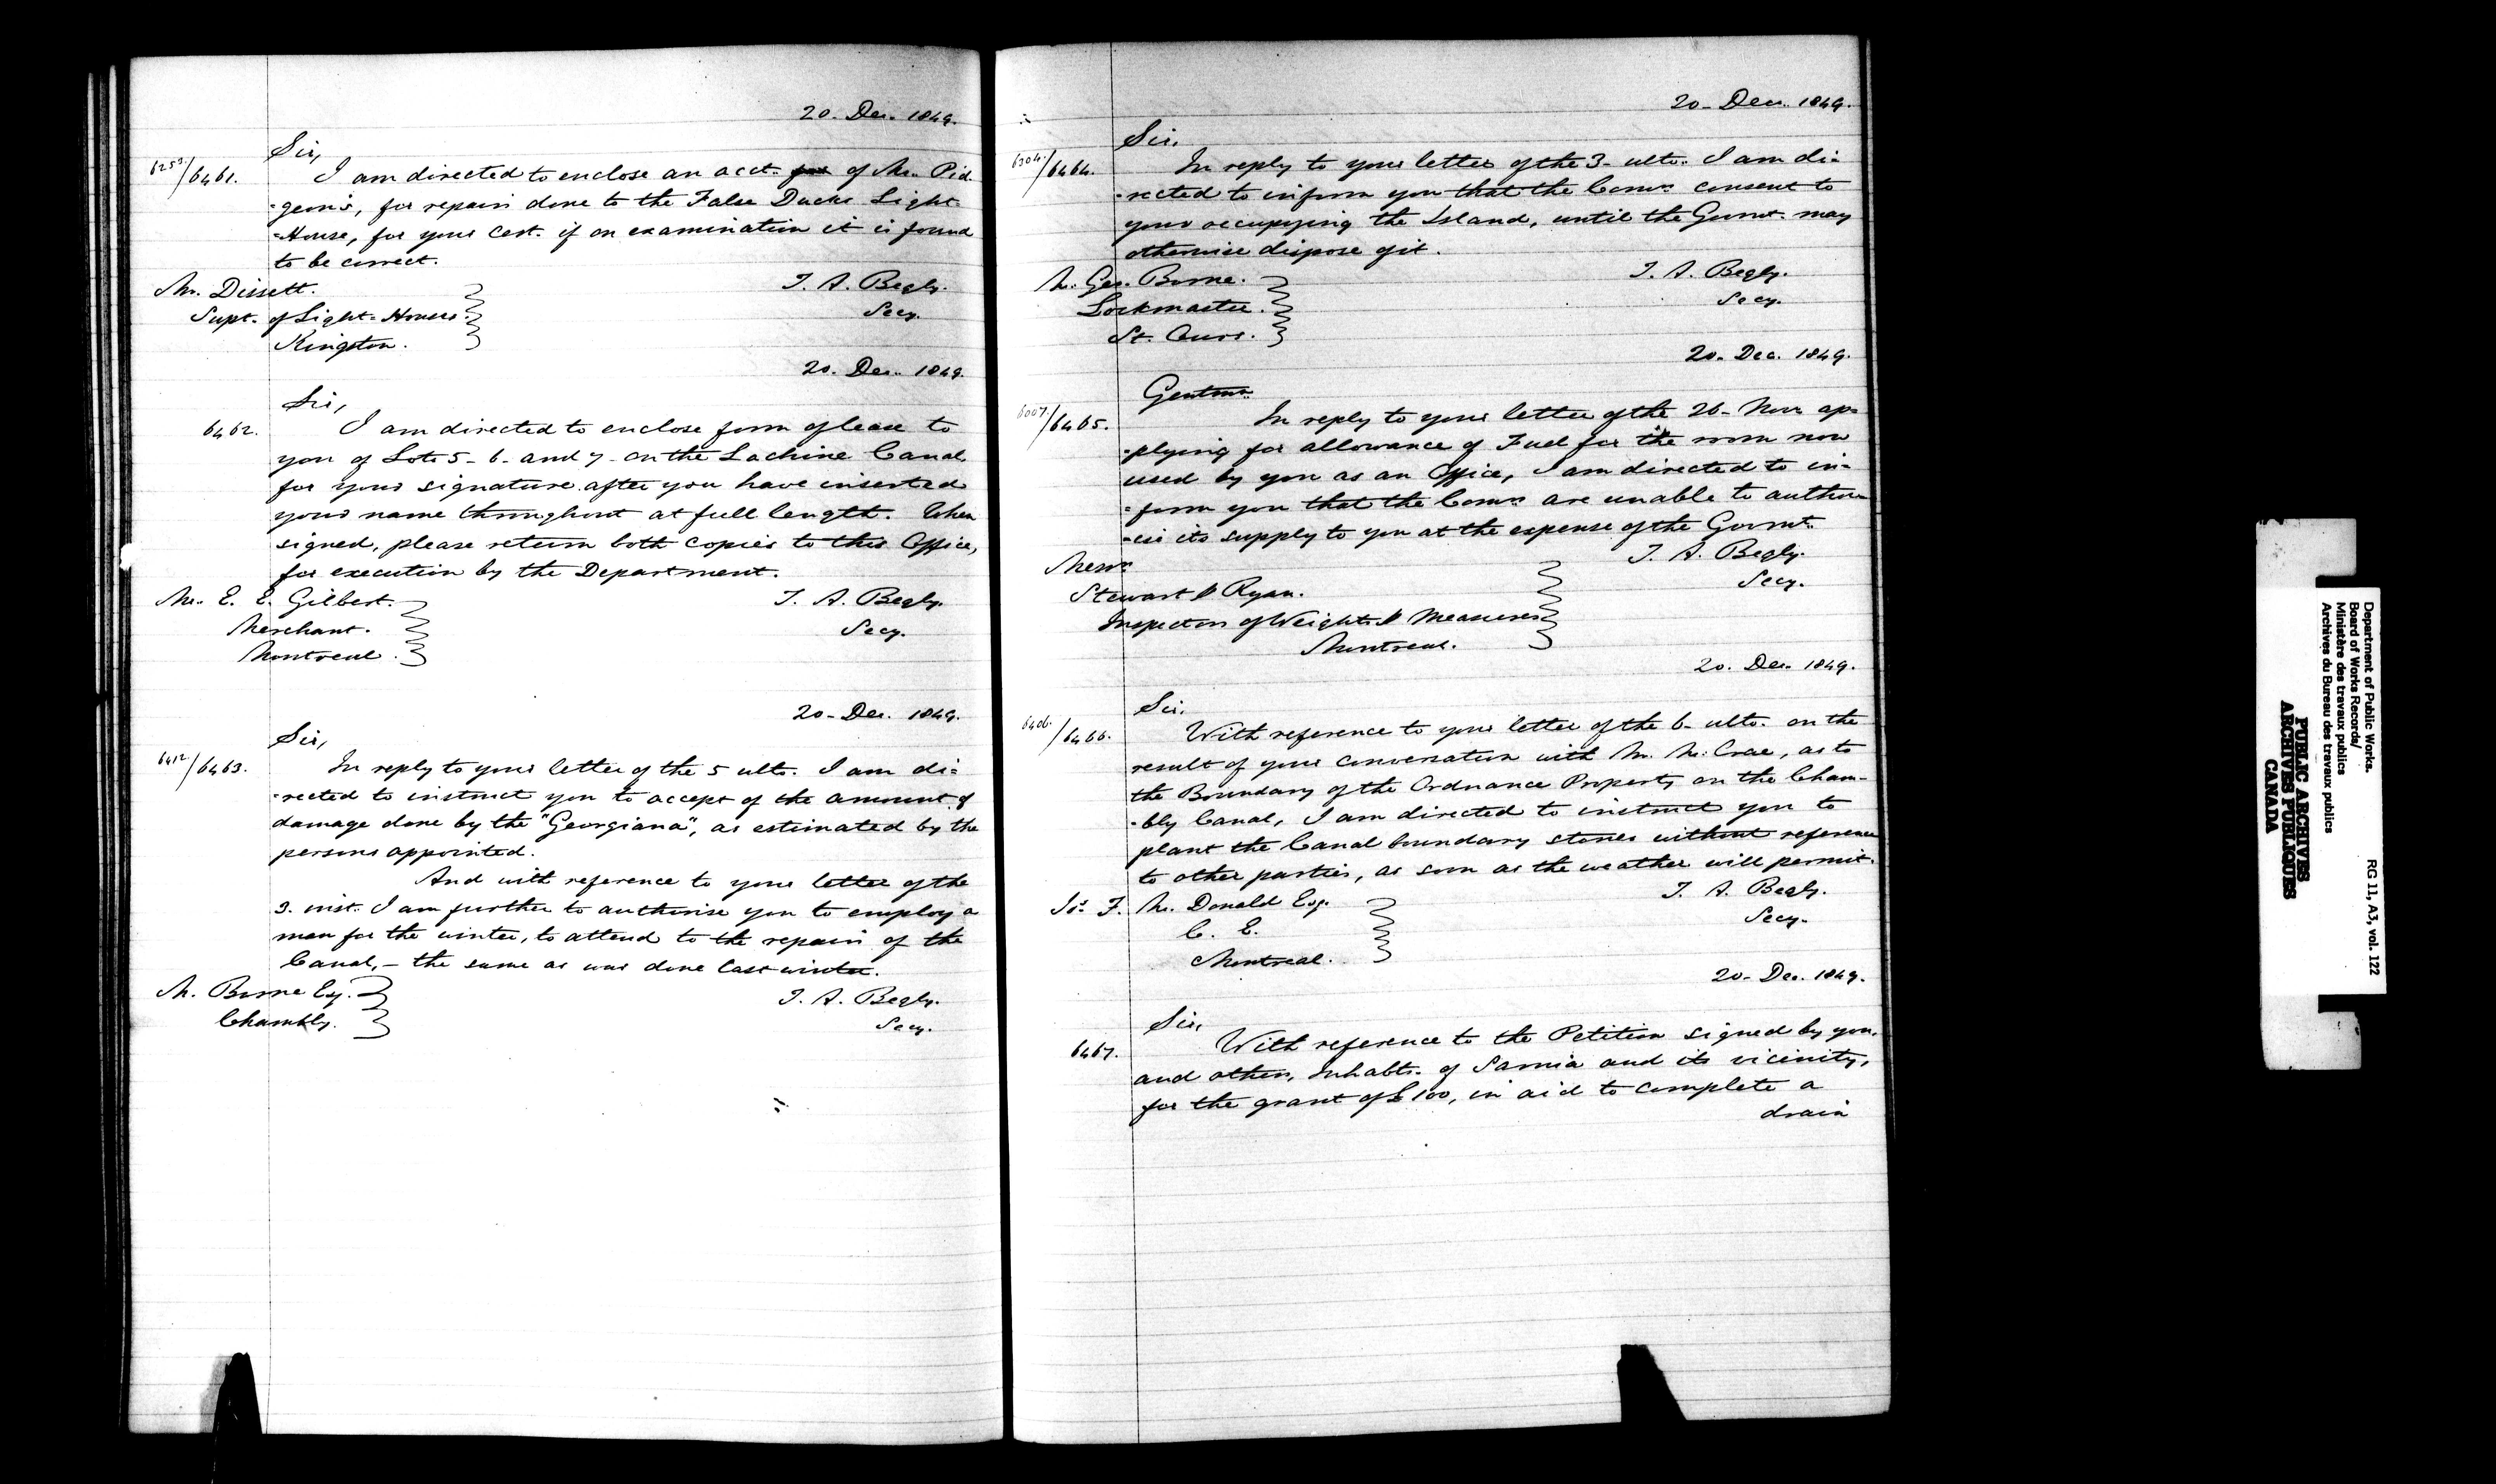 20. Dec. 1849.
Sir,
6253./6461. I am directed to enclose an acct. for of Mr. Pid-
-geon's, for repairs done to the False Ducks Light-
-House, for your Cert. if on examination it is found
to be correct.
Mr. Dissett. T. A. Begly.
Supt. of Light-Houses. Secy.
Kingston.
20. Dec. 1849.
Sir,
6462. I am directed to enclose form of lease to
you of Lots 5- 6- and 7- on the Lachine Canal
for your signature after you have inserted
your name throughout at full length. When
signed, please return both copies to this Office,
for execution by the Department.
Mr. E. E. Gilbert. T. A. Begly.
Merchant. Secy.
Montreal.
20- Dec. 1849.
Sir,
6412/6463. In reply to your letter of the 5 ulto. I am di-
-rected to instruct you to accept of the amount of
damage done by the "Georgiana", as estimated by the
persons appointed.
And with reference to your letter of the
3. inst. I am further to authorise you to employ a
man for the winter, to attend to the repairs of the
Canal,- the same as was done last winter.
M. Borne Esq. T. A. Begly.
Chambly. Secy.
20- Dec. 1849.
Sir.
6304./6464. In reply to your letter of the 3- ulto. I am di-
-rected to inform you that the Comrs. consent to
your occupying the Island, until the Govmt. may
otherwise dispose of it.
Mr. Geo. Borne. T. A. Begly.
Lockmaster. Secy.
St. Ours.
20. Dec. 1849.
Gentmn.
6007./6465. In reply to your letter of the 26- Novr. ap-
-plying for allowance of Fuel for the room now
used by you as an Office, I am directed to in-
-form you that the Comrs. are unable to author-
-ise its supply to you at the expense of the Govmt.
Messrs. T. A. Begly.
Stewart & Ryan. Secy.
Inspectors of Weights & Measures
Montreal.
20. Dec. 1849.
Sir.
6406./6466. With reference to your letter of the 6- ulto. on the
result of your conversation with Mr. McCrae, as to
the Boundary of the Ordnance Property on the Cham-
-bly Canal, I am directed to instruct you to
plant the Canal boundary stones without reference
to other parties, as soon as the weather will permit.
Jos. F. McDonald Esq. T. A. Begly.
C. E. Secy.
Montreal.
20- Dec. 1849.
Sir,
6467. With reference to the Petition signed by you,
and others, Inhabts. of Sarnia and its vicinity,
for the grant of £100, in aid to complete a
drain
Department of Public Works.
Board of Works Records/
Ministère des travaux publics
Archives du Bureau des travaux publics
RG 11, A3, vol. 122
PUBLIC ARCHIVES
ARCHIVES PUBLIQUES
CANADA